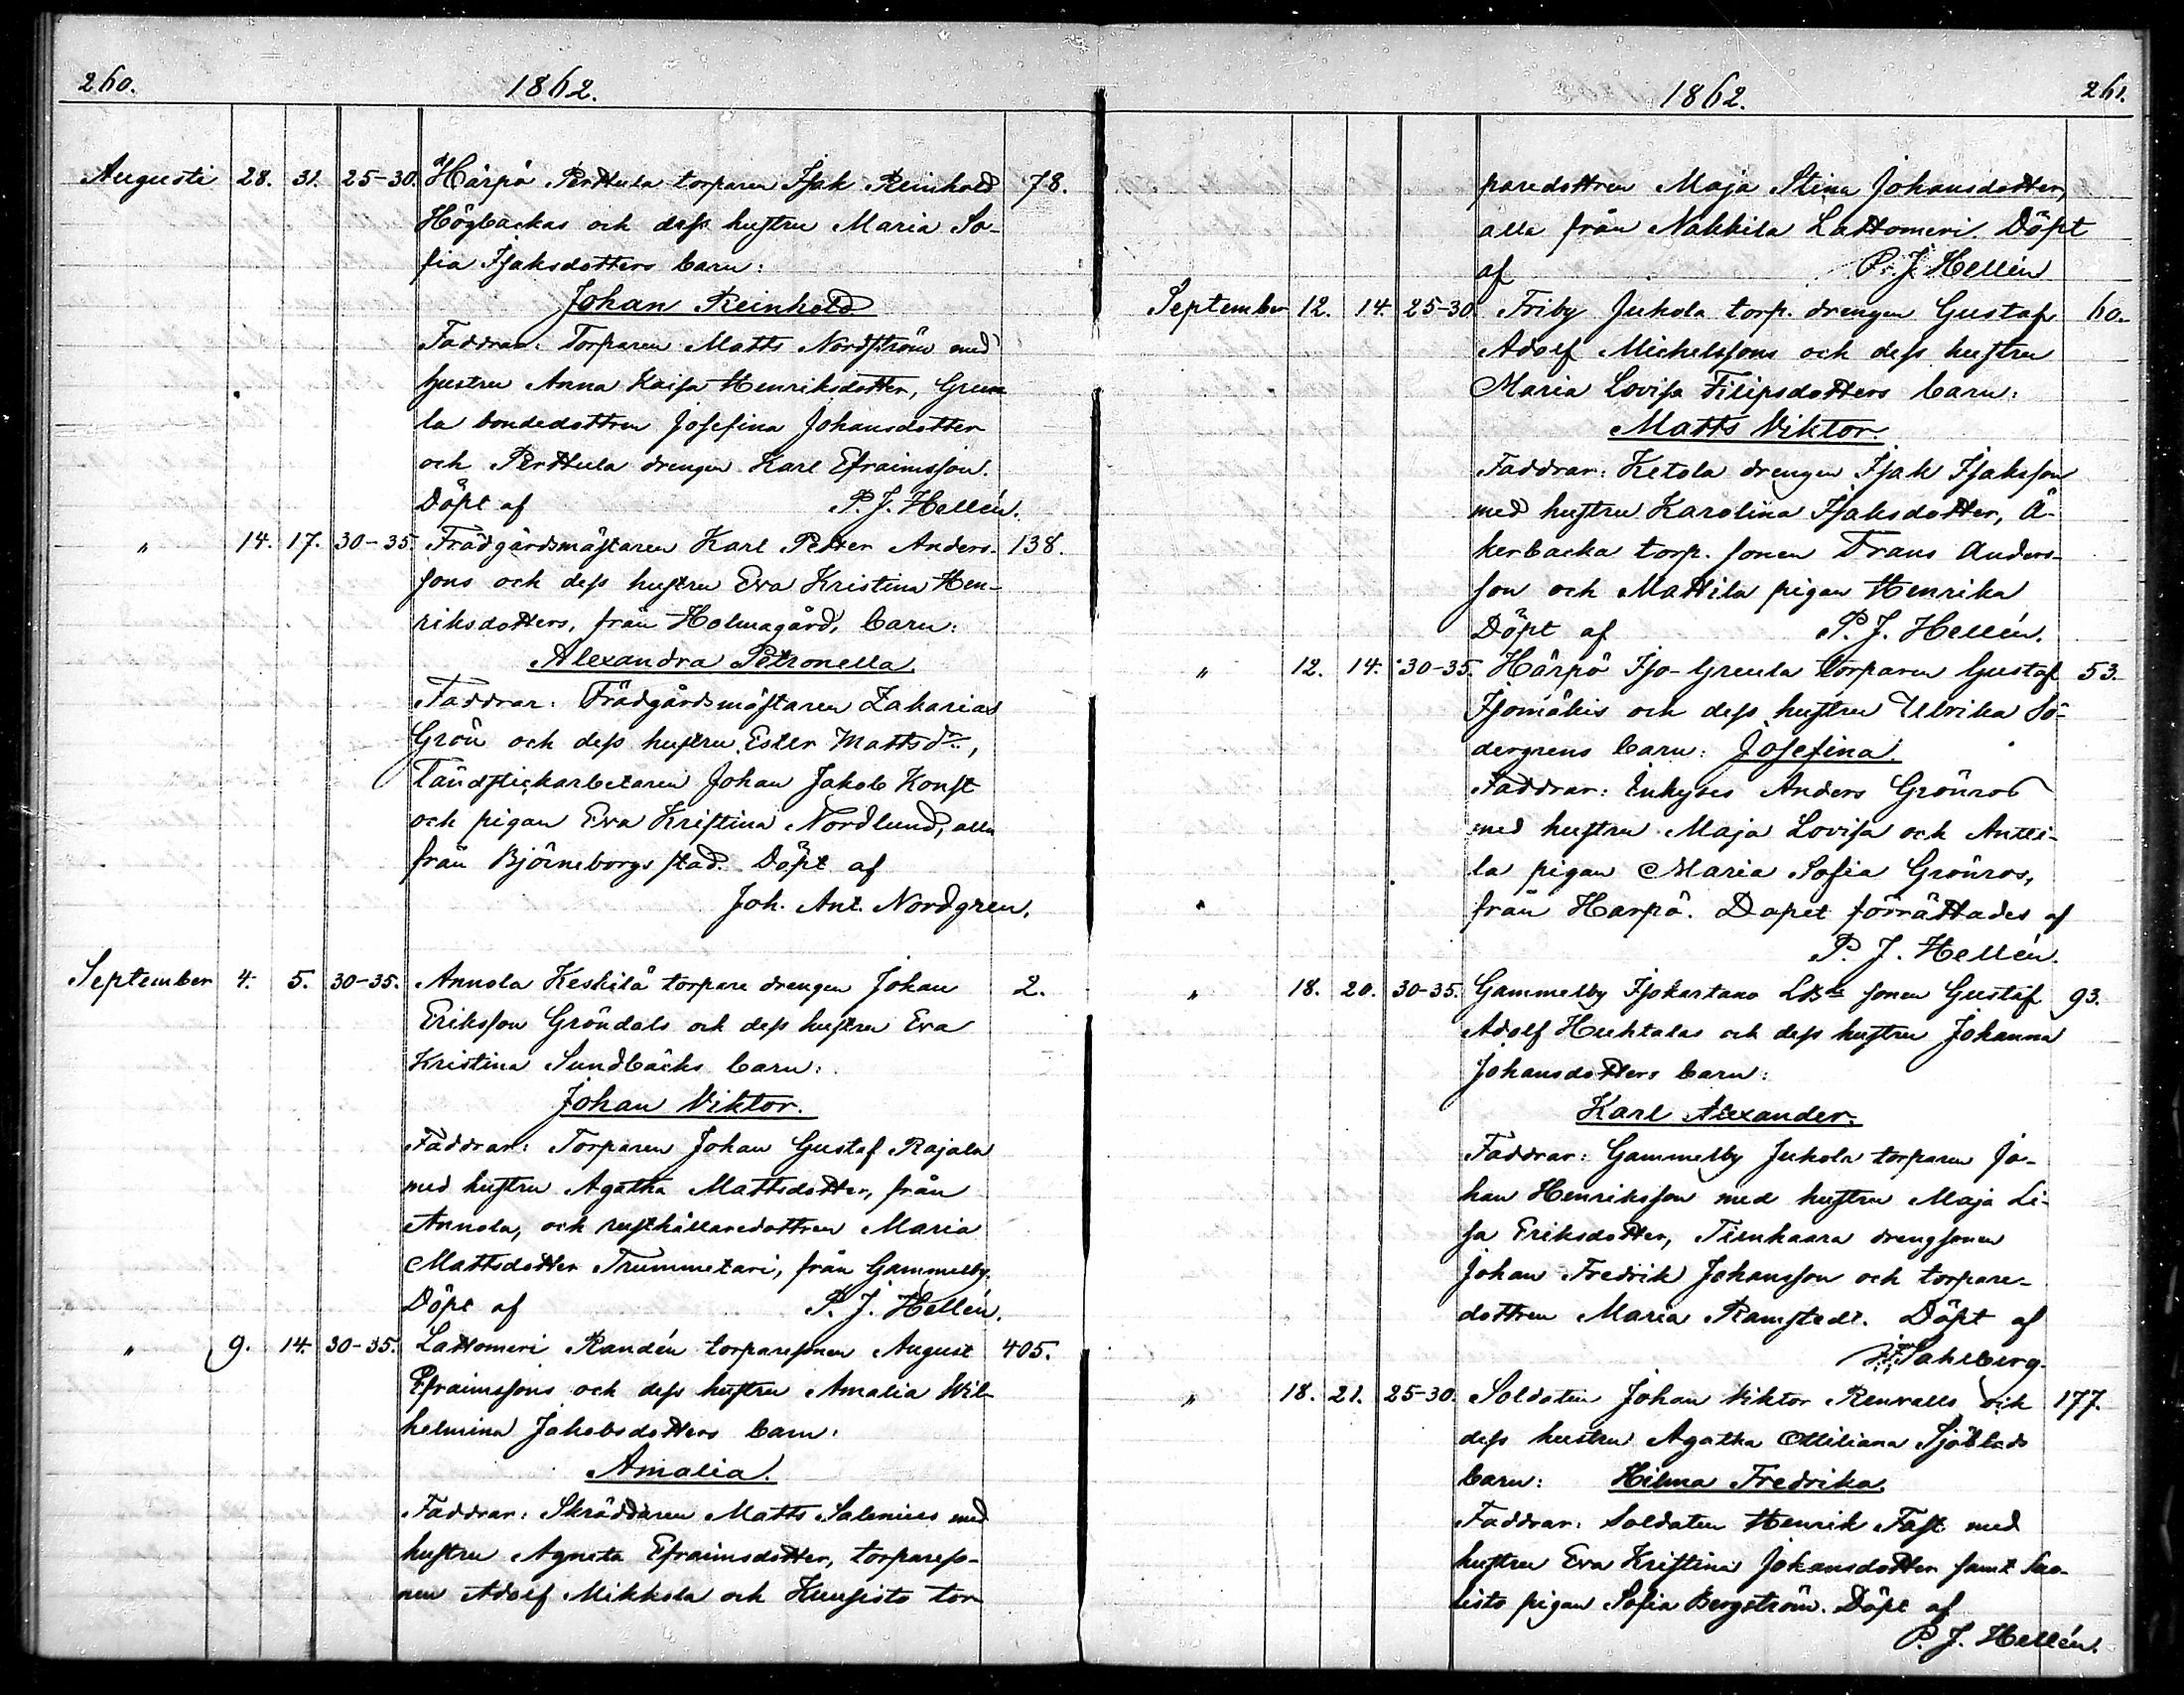 260. 1862.
Augusti 28. 31. 25-30. Härpö Perttula torparen Isak Reinhold 78.
Högbackas och dess hustru Maria So-
fia Isaksdotters barn:
Johan Reinhold
Faddrar: Torparen Matts Nordström med
hustru Anna Kaisa Henriksdotter, Greu-
la bondedottren Josefina Johansdotter
och Perttula drengen Karl Efraimsson.
Döpt af P. J. Hellén.
" 14. 17. 30-35. Trädgårdsmästaren Karl Petter Anders- 138.
sons och dess hustru Eva Kristina Hen-
riksdotters, från Holmagård, barn:
Alexandra Petronella.
Faddrar: Trädgårdsmästaren Zakarias
Grön och dess hustru Ester Mattsdr,
Tändstickarbetaren Johan Jakob Konst
och pigan Eva Kristina Nordlund, alla
från Björneborgs stad. Döpt af
Joh. Ant. Nordgren.
September 4. 5. 30-35. Annola Keskilä torpare drengen Johan 2.
Eriksson Gröndals och dess hustru Eva
Kristina Sundbäcks barn:
Johan Viktor.
Faddrar: Torparen Johan Gustaf Rajala
med hustru Agatha Mattsdotter, från
Annola, och rusthållaredottren Maria
Mattsdotter Trummetari, från Gammelby.
Döpt af P. J. Hellén.
" 9. 14. 30-35. Lattomeri Randén torparesonen August 405.
Efraimssons och dess hustru Amalia Wil-
helmina Jakobsdotters barn:
Amalia.
Faddrar: Skräddaren Matts Salenius med
hustru Agneta Efraimsdotter, torpareso-
nen Adolf Mikkola och Kuusisto tor-
1862. 261.
paredottren Maja Stina Johansdotter,
alla från Nakkila Lattomeri. Döpt
af P. J. Hellén
September 12. 14. 25-30. Friby Jukola torp. drengen Gustaf 60.
Adolf Michelssons och dess hustru
Maria Lovisa Filipsdotters barn:
Matts Viktor.
Faddrar: Ketola drengen Isak Isaksson
med hustru Karolina Isaksdotter, Å-
kerbacka torp. sonen Frans Anders-
son och Mattila pigan Henrika
Döpt af P. J. Hellén.
" 12. 14. 30-35. Härpö Iso-Greula torparen Gustaf 53.
Isomäkis och dess hustru Ulrika Sö-
dergrens barn: Josefina.
Faddrar: Inhyses Anders Grönros
med hustru Maja Lovisa och Antti-
la pigan Maria Sofia Grönros,
från Harpö. Dopet förrättades af
P. J. Hellén.
" 18. 20. 30-35. Gammelby Isokartano sonen Gustaf 93.
Adolf Huhtalas och dess hustru Johanna
Johansdotters barn:
Karl Alexander.
Faddrar: Gammelby Jukola torparen Jo-
han Henriksson med hustru Maja Li-
sa Eriksdotter, Tienhaara drengsonen
Johan Fredrik Johansson och torpare-
dottren Maria Ramstedt. Döpt af
Sahlberg.
" 18. 21. 25-30. Soldaten Johan Viktor Renvalls och 177.
dess hustru Agatha Ottiliana Sjöblads
barn: Hilma Fredrika.
Faddrar: Soldaten Henrik Fast med
hustru Eva Kristina Johansdotter samt Suo-
listo pigan Sofia Bergström. Döpt af
P. J. Hellén.